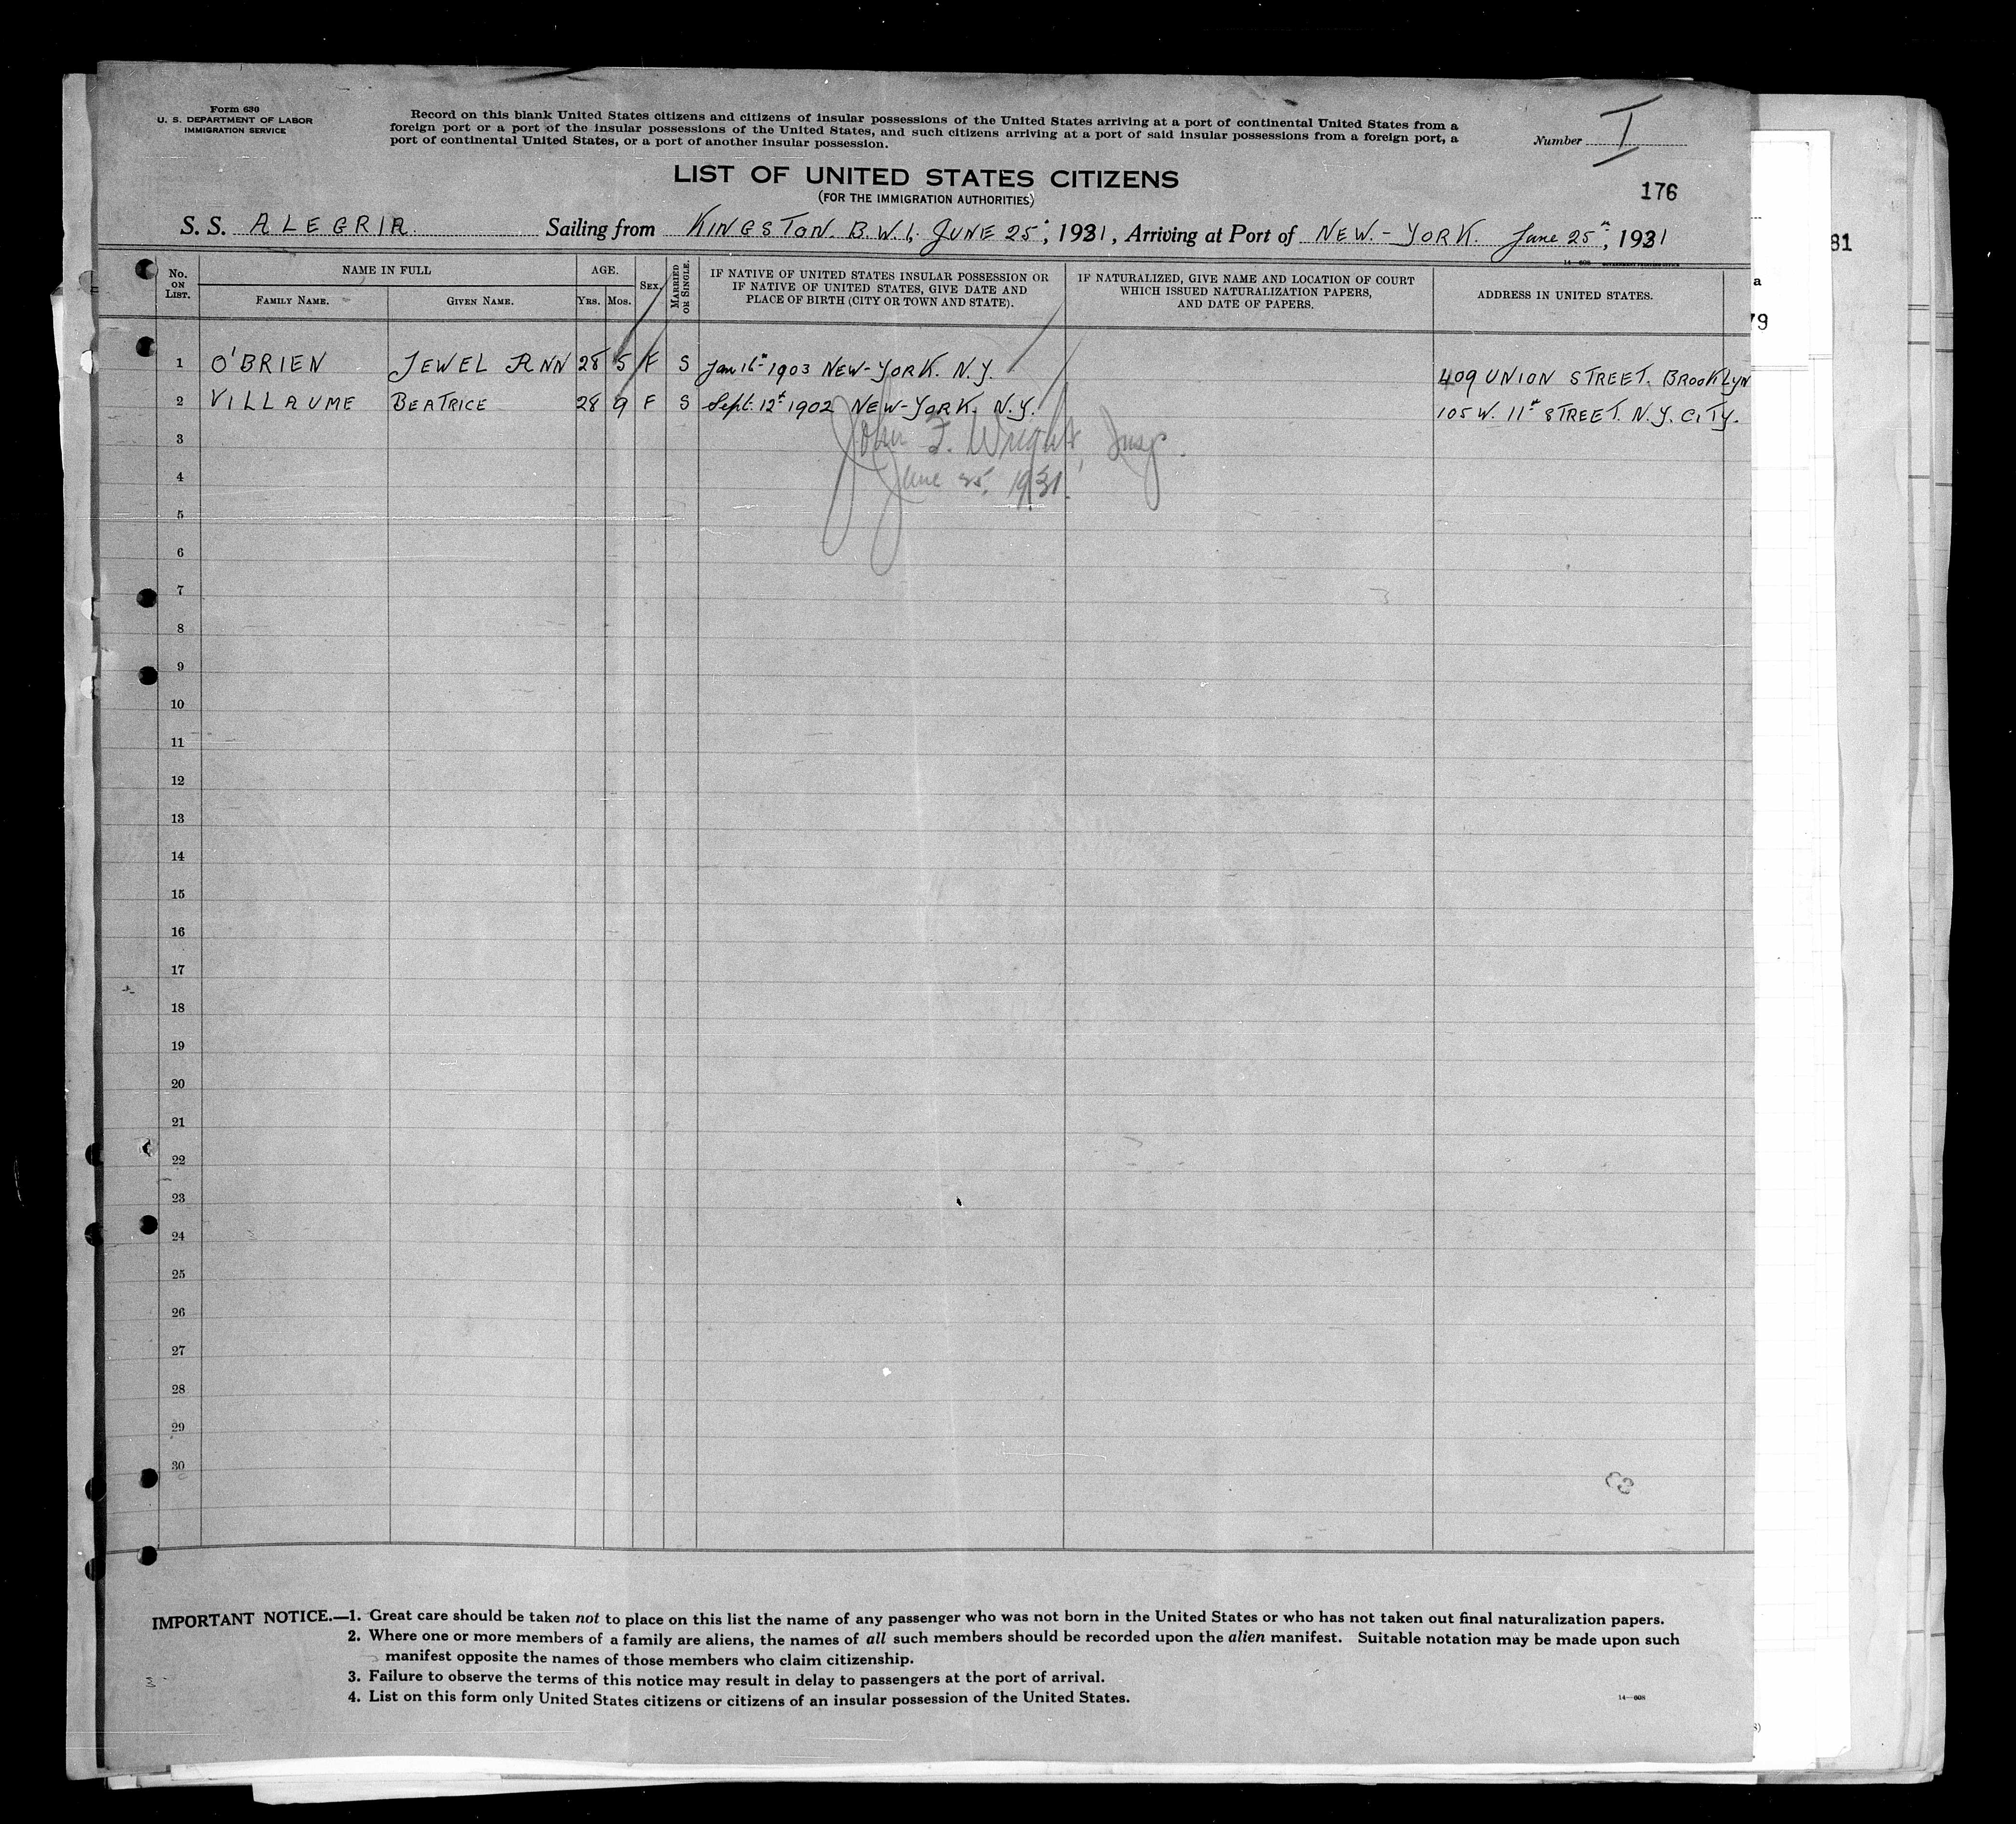 Form 630
U. S. DEPARTMENT OF LABOR
IMMIGRATION SERVICE
Record on this blank United States citizens and citizens of insular possessions of the United States arriving at a port of continental United States from a
foreign port or a port of the insular possessions of the United States, and such citizens arriving at a port of said insular possessions from a foreign port, a
port of continental United States, or a port of another insular possession.
Number I
LIST OF UNITED STATES CITIZENS
(FOR THE IMMIGRATION AUTHORITIES)
176
S. S. ALEGRIA. Sailing from KINGSTON. B.W.I, JUNE 25th, 1931, Arriving at Port of NEW-YORK. June 25th, 1931
14—608 GOVERNMENT PRINTING OFFICE
No. ON LIST. NAME IN FULL AGE. SEX. MARRIED OR SINGLE. IF NATIVE OF UNITED STATES INSULAR POSSESSION OR IF NATIVE OF UNITED STATES, GIVE DATE AND PLACE OF BIRTH (CITY OR TOWN AND STATE). IF NATURALIZED, GIVE NAME AND LOCATION OF COURT WHICH ISSUED NATURALIZATION PAPERS, AND DATE OF PAPERS. ADDRESS IN UNITED STATES.
FAMILY NAME. GIVEN NAME. YRS. MOS.
1 O'BRIEN JEWEL ANN 28 5 F S Jan 16th 1903 NEW-YORK. N.Y. 409 UNION STREET. BROOKLYN
2 VILLAUME BEATRICE 28 9 F S Sept. 12th 1902 NEW-YORK. N.Y. 105 W. 11th STREET. N.Y. CITY.
3
John F. Wright, Insp.
4
June 25, 1931.
5
6
7
8
9
10
11
12
13
14
15
16
17
18
19
20
21
22
23
24
25
26
27
28
29
30
IMPORTANT NOTICE.—1. Great care should be taken not to place on this list the name of any passenger who was not born in the United States or who has not taken out final naturalization papers.
2. Where one or more members of a family are aliens, the names of all such members should be recorded upon the alien manifest. Suitable notation may be made upon such
manifest opposite the names of those members who claim citizenship.
3. Failure to observe the terms of this notice may result in delay to passengers at the port of arrival.
4. List on this form only United States citizens or citizens of an insular possession of the United States.
14—608
81
a
79